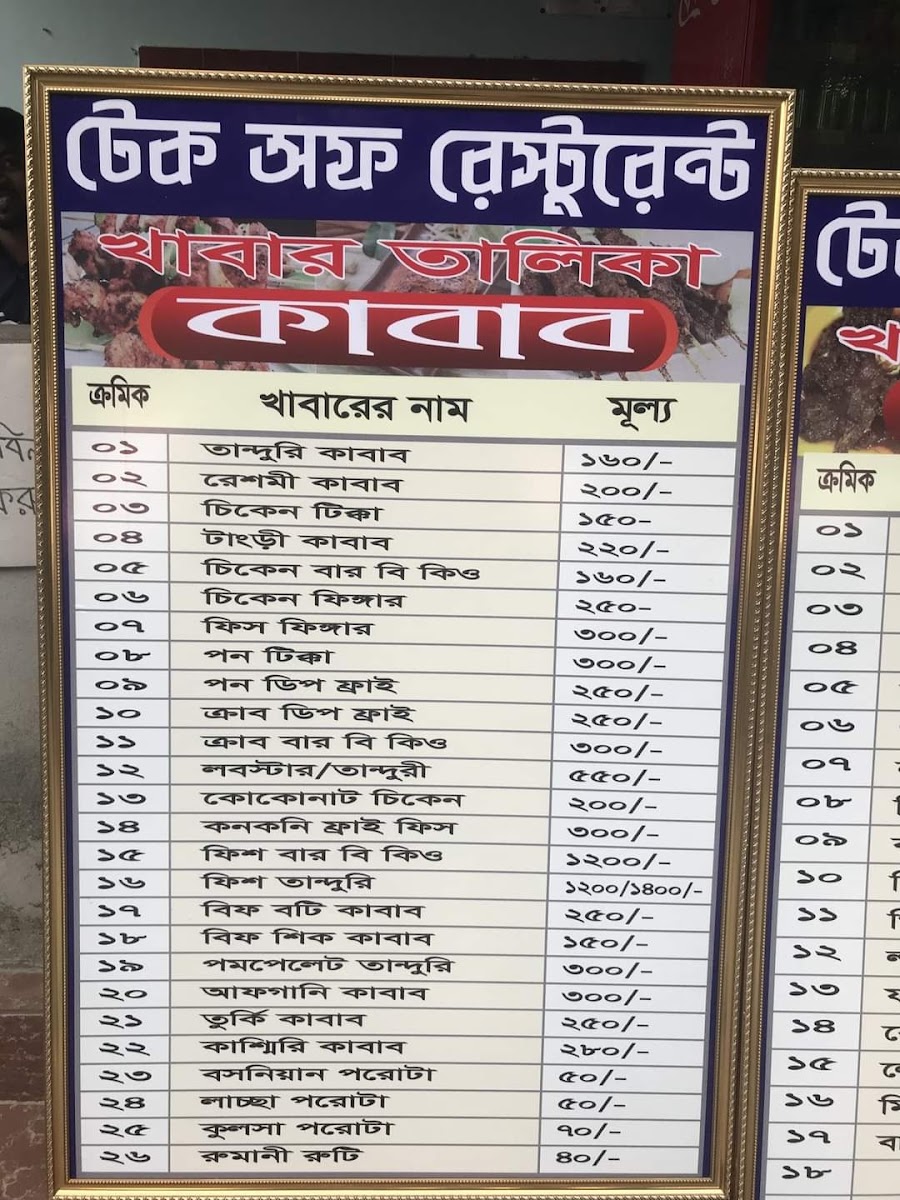 টেক অফ রেস্টুরেন্ট
খাবার তালিকা
কাবাব
ক্রমিক খাবারের নাম মূল্য
০১ তান্দুরি কাবাব ১৬০/-
০২ রেশমী কাবাব ২০০/-
০৩ চিকেন টিক্কা ১৫০-
০৪ টাংড়ী কাবাব ২২০/-
০৫ চিকেন বার বি কিও ১৬০/-
০৬ চিকেন ফিঙ্গার ২৫০-
০৭ ফিস ফিঙ্গার ৩০০/-
০৮ পন টিক্কা ৩০০/-
০৯ পন ডিপ ফ্রাই ২৫০/-
১০ ক্রাব ডিপ ফ্রাই ২৫০/-
১১ ক্রাব বার বি কিও ৩০০/-
১২ লবস্টার/তান্দুরী ৫৫০/-
১৩ কোকোনাট চিকেন ২০০/-
১৪ কনকনি ফ্রাই ফিস ৩০০/-
১৫ ফিশ বার বি কিও ১২০০/-
১৬ ফিশ তান্দুরি ১২০০/১৪০০/-
১৭ বিফ বটি কাবাব ২৫০/-
১৮ বিফ শিক কাবাব ১৫০/-
১৯ পমপেলেট তান্দুরি ৩০০/-
২০ আফগানি কাবাব ৩০০/-
২১ তুর্কি কাবাব ২৫০/-
২২ কাশ্মিরি কাবাব ২৮০/-
২৩ বসনিয়ান পরোটা ৫০/-
২৪ লাচ্ছা পরোটা ৫০/-
২৫ কুলসা পরোটা ৭০/-
২৬ রুমানী রুটি ৪০/-
ক্রমিক
০১
০২
০৩
০৪
০৫
০৬
০৭
০৮
০৯
১০
১১
১২
১৩
১৪
১৫
১৬
১৭
১৮